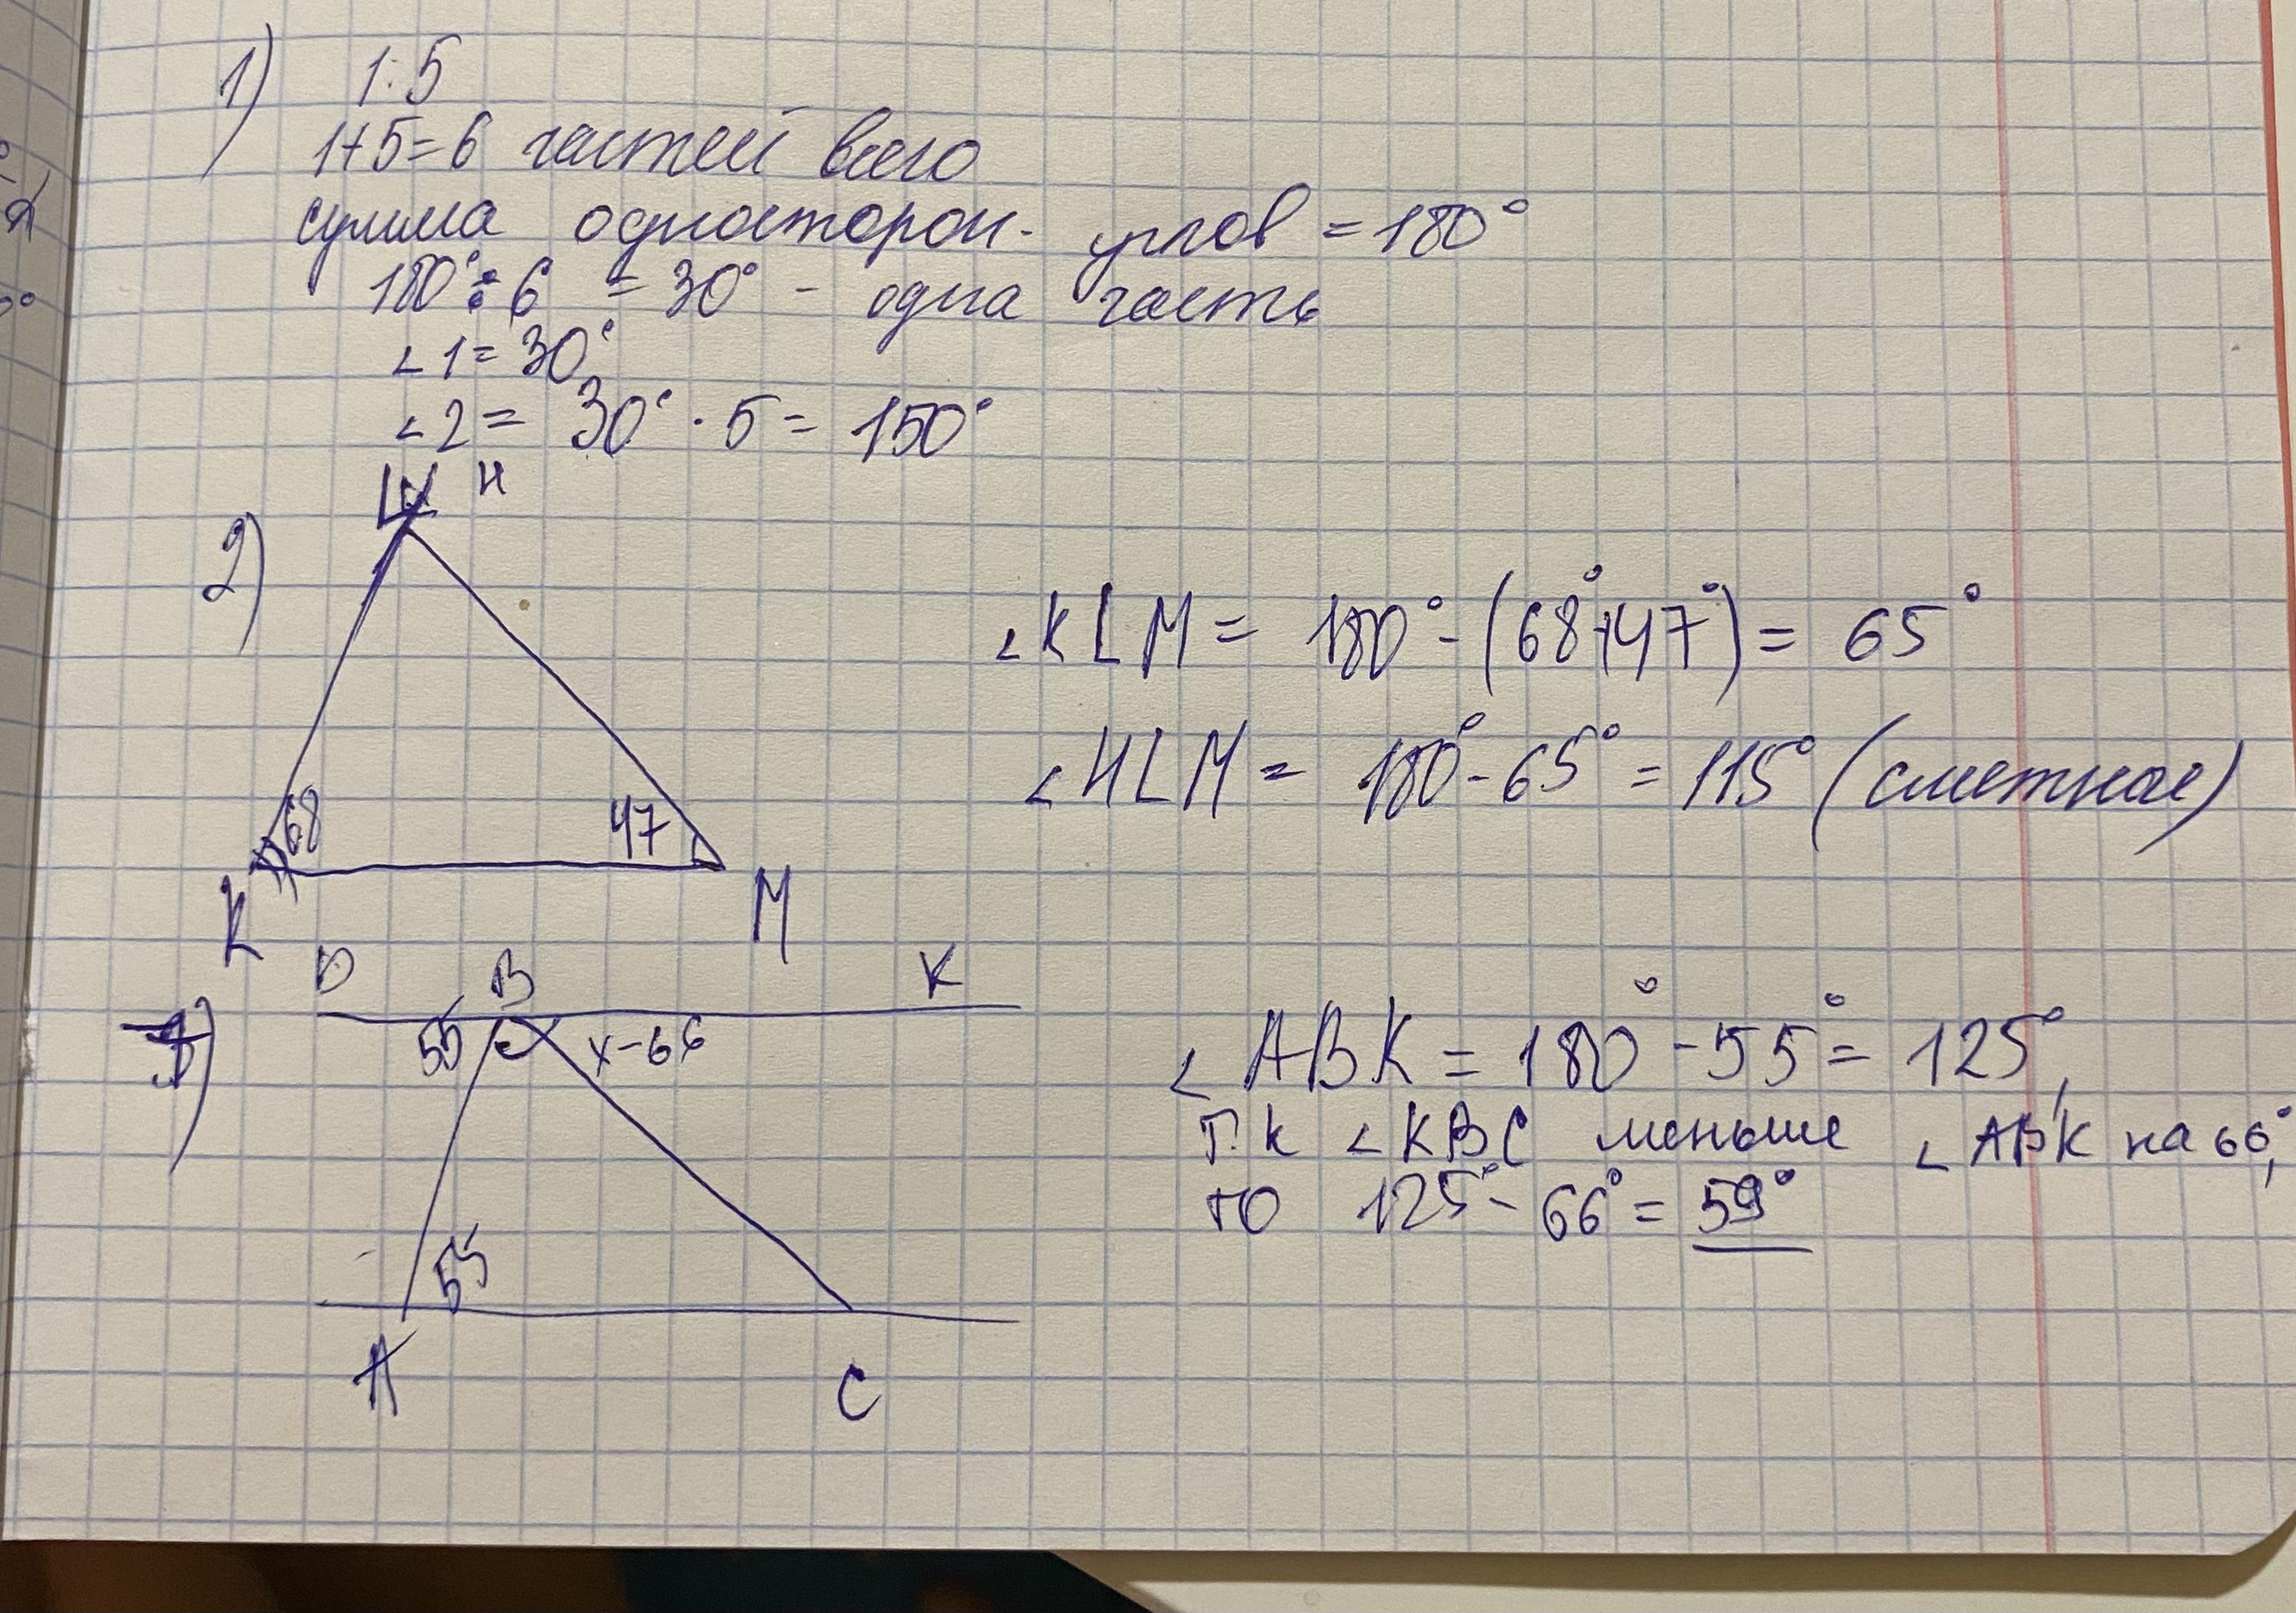 1) 1:5
1+5=6 частей всего
сумма односторон. углов = 180°
180° : 6 = 30° - одна часть
∠1 = 30°
∠2 = 30° · 5 = 150°
2)
L H
68 47
K M
∠KLM = 180° - (68°+47°) = 65°
∠HLM = 180° - 65° = 115° (сметное)
3)
D B K
55 x-66
55
A C
∠ABK = 180° - 55° = 125°,
т.к ∠KBC меньше ∠ABK на 66°,
то 125° - 66° = 59°